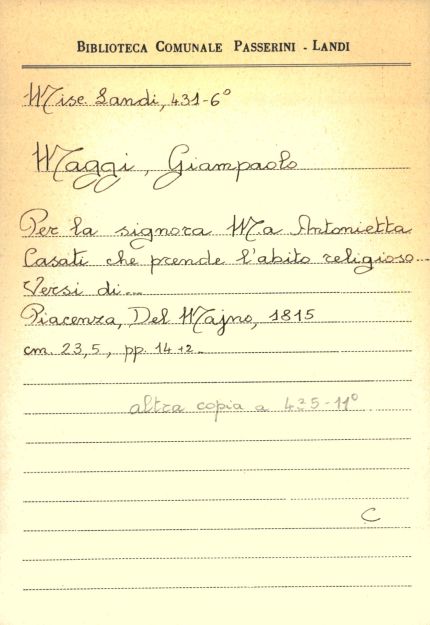 BIBLIOTECA COMUNALE PASSERINI - LANDI
Misc. Landi, 431-6°
Maggi, Giampaolo
Per la signora M.a Antonietta
Casati che prende l'abito religioso...
Versi di...
Piacenza, Del Majno, 1815
cm. 23,5, pp. 14+2.
altra copia a 425-11°
C